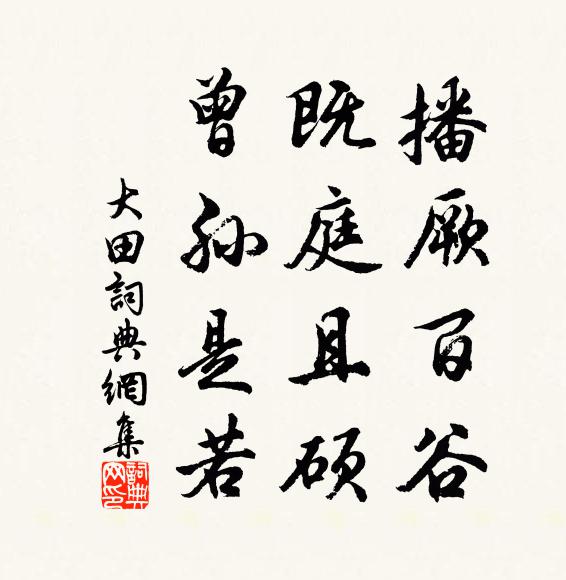 播厥百谷
既庭且硕
曾孙是若
大田詞典網集
詞典网印